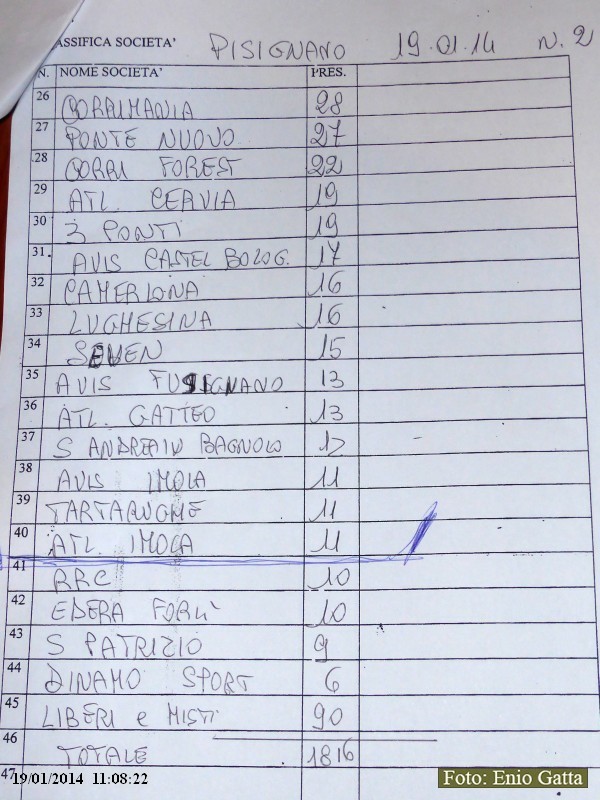 ASSIFICA SOCIETA' PISIGNANO 19.01.14 N. 2
N. NOME SOCIETA' PRES.
26 CORRIMANIA 28
27 PONTE NUOVO 27
28 CORRI FOREST 22
29 ATL. CERVIA 19
30 3 PONTI 19
31. AVIS CASTEL BOLOG. 17
32 CAMERLONA 16
33 LUGHESINA 16
34 SEVEN 15
35 AVIS FUSIGNANO 13
36 ATL. GATTEO 13
37 S ANDREA IN BAGNOLO 12
38 AVIS IMOLA 11
39 TARTARUGHE 11
40 ATL. IMOLA 11
41 RRC 10
42 EDERA FORLI' 10
43 S PATRIZIO 9
44 DINAMO SPORT 6
45 LIBERI e MISTI 90
46 TOTALE 1816
47
19/01/2014 11:08:22
Foto: Enio Gatta